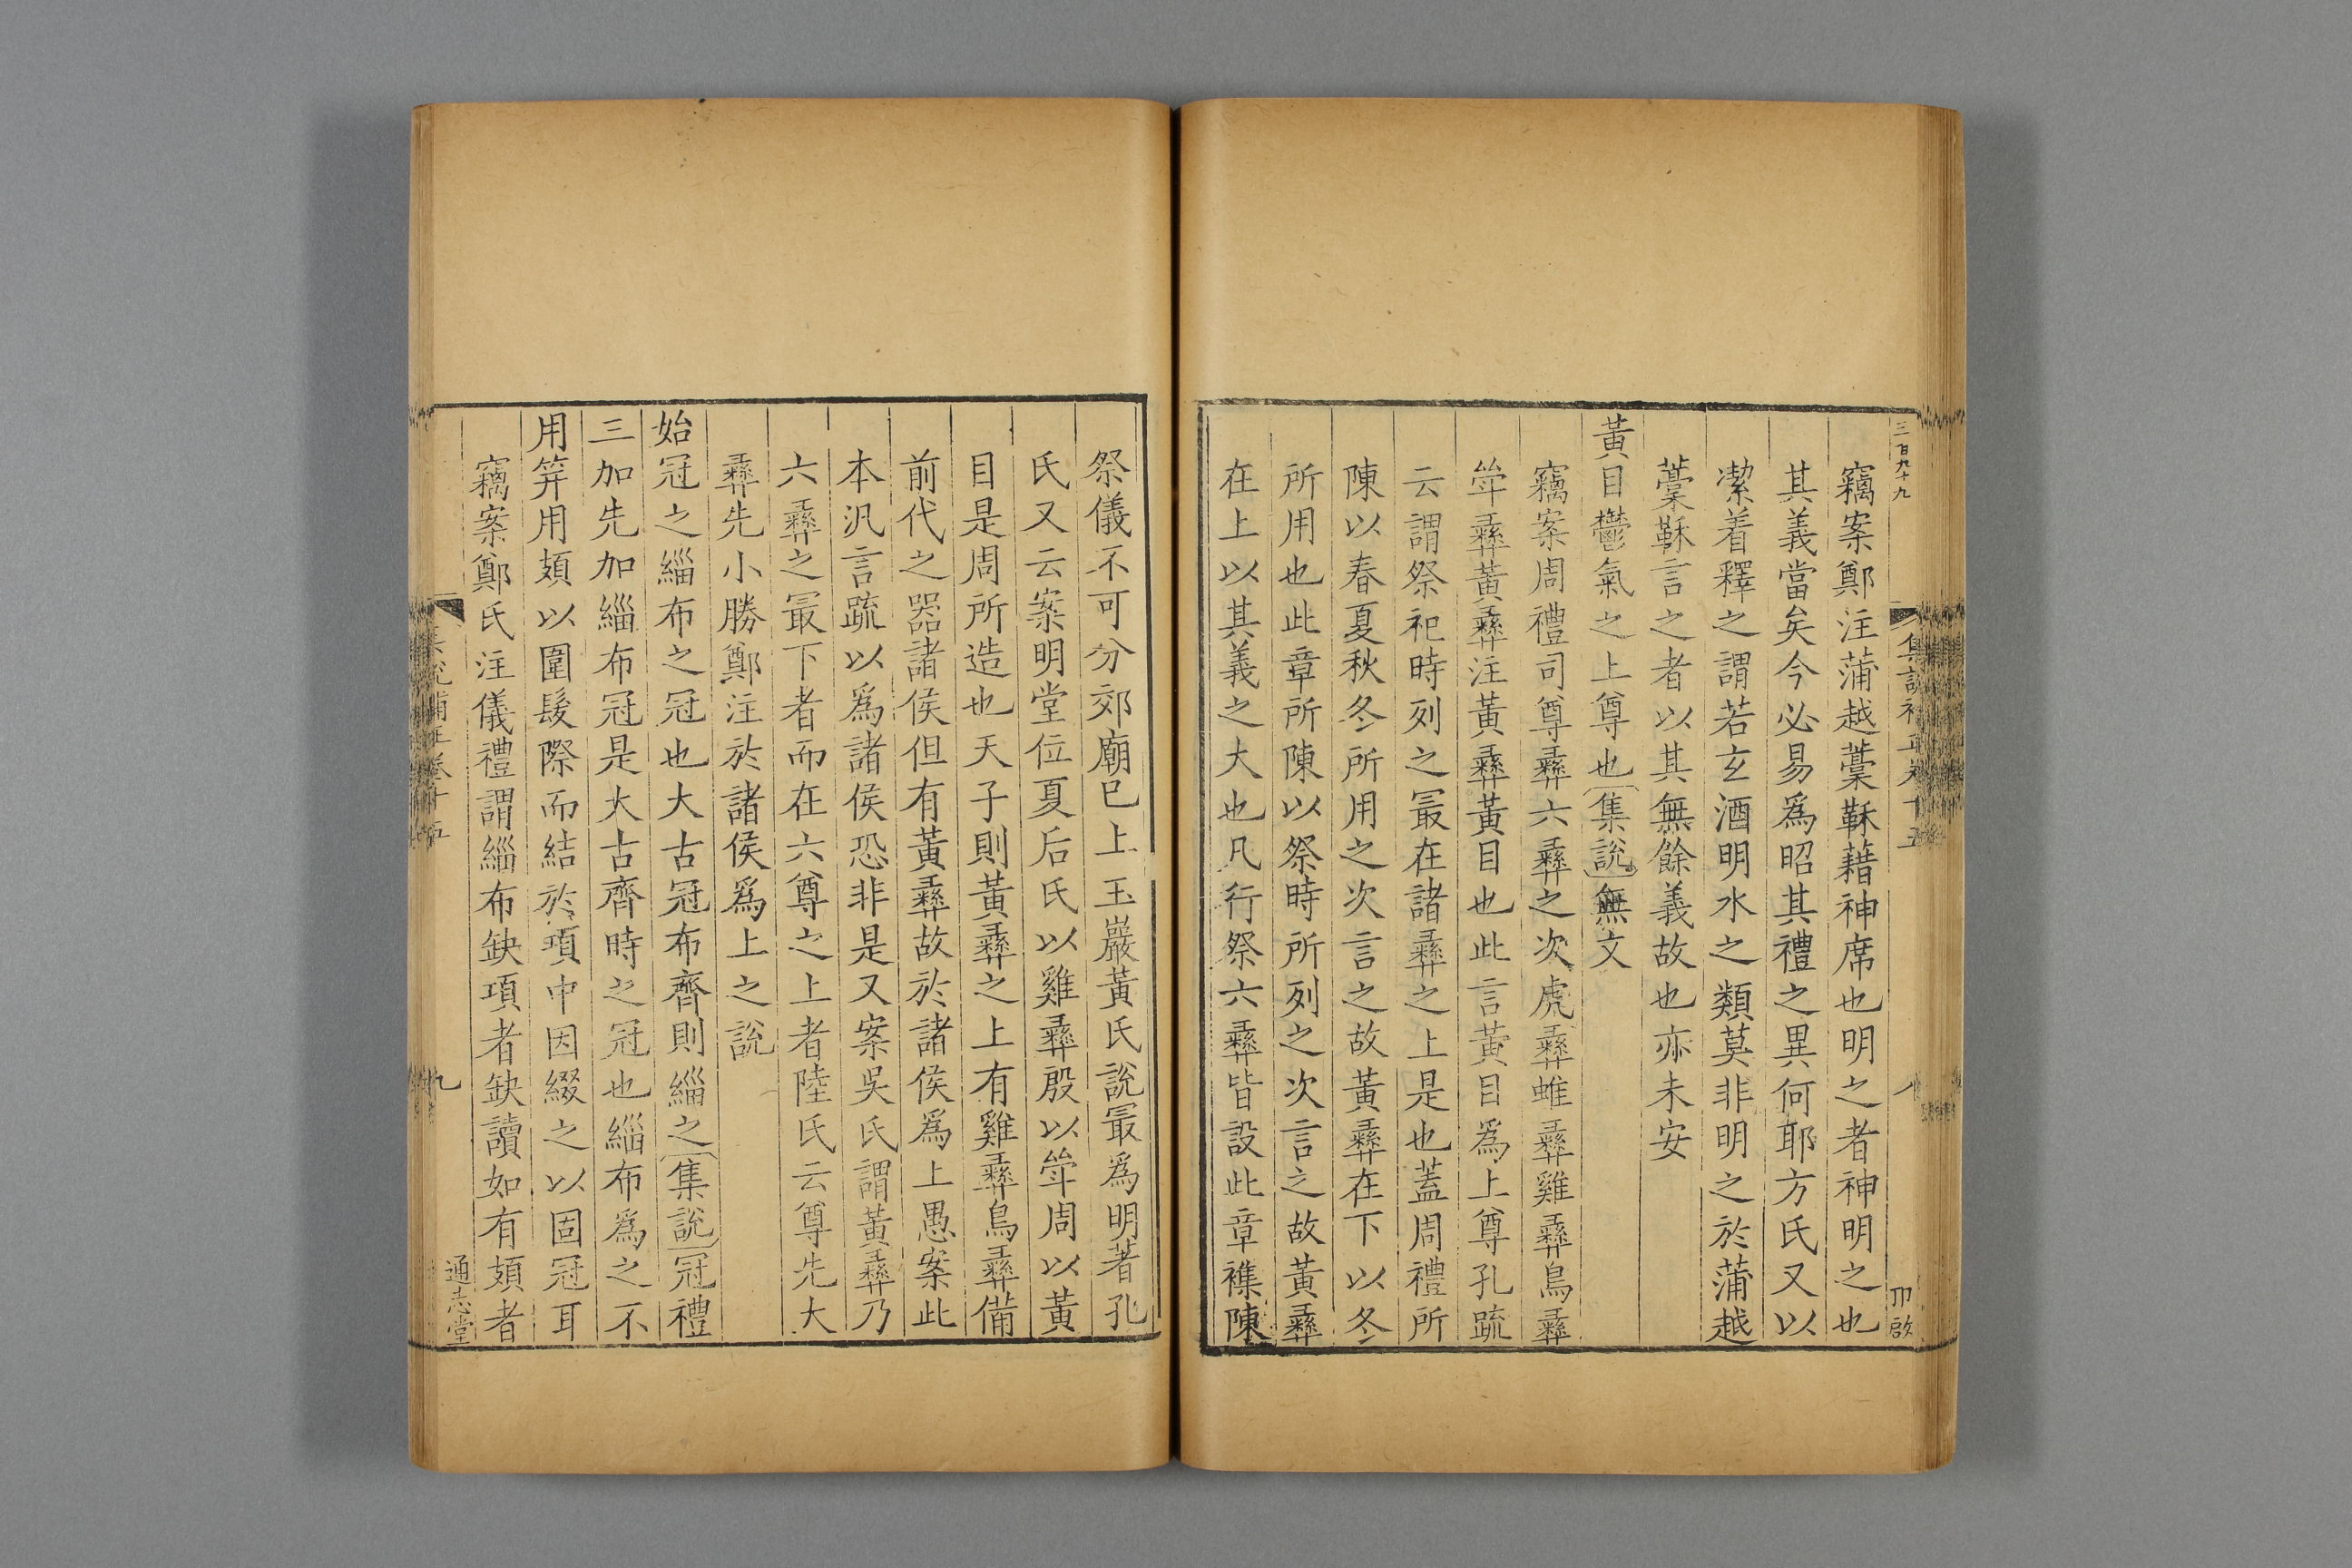 三百九十九
集說補正卷十五
八
卭啟
竊案鄭注蒲越藁鞂藉神席也明之者神明之也
其義當矣今必易為昭其禮之異何耶方氏又以
潔着釋之謂若玄酒明水之類莫非明之於蒲越
藁鞂言之者以其無餘義故也亦未安
黃目鬱氣之上尊也〔集說〕無文
竊案周禮司尊彝六彝之次虎彝蜼彝雞彝鳥彝
斝彝黃彝注黃彝黃目也此言黃目為上尊孔疏
云謂祭祀時列之最在諸彝之上是也蓋周禮所
陳以春夏秋冬所用之次言之故黃彝在下以冬
所用也此章所陳以祭時所列之次言之故黃彝
在上以其義之大也凡行祭六彝皆設此章襍陳
祭儀不可分郊廟已上玉巖黃氏說最為明著孔
氏又云案明堂位夏后氏以雞彝殷以斝周以黃
目是周所造也天子則黃彝之上有雞彝鳥彝備
前代之器諸侯但有黃彝故於諸侯為上愚案此
本汎言疏以為諸侯恐非是又案吳氏謂黃彝乃
六彝之最下者而在六尊之上者陸氏云尊先大
彝先小勝鄭注於諸侯為上之說
始冠之緇布之冠也大古冠布齊則緇之〔集說〕冠禮
三加先加緇布冠是大古齊時之冠也緇布為之不
用笄用頍以圍髮際而結於項中因綴之以固冠耳
竊案鄭氏注儀禮謂緇布缺項者缺讀如有頍者
集說補正卷十五
九
通志堂